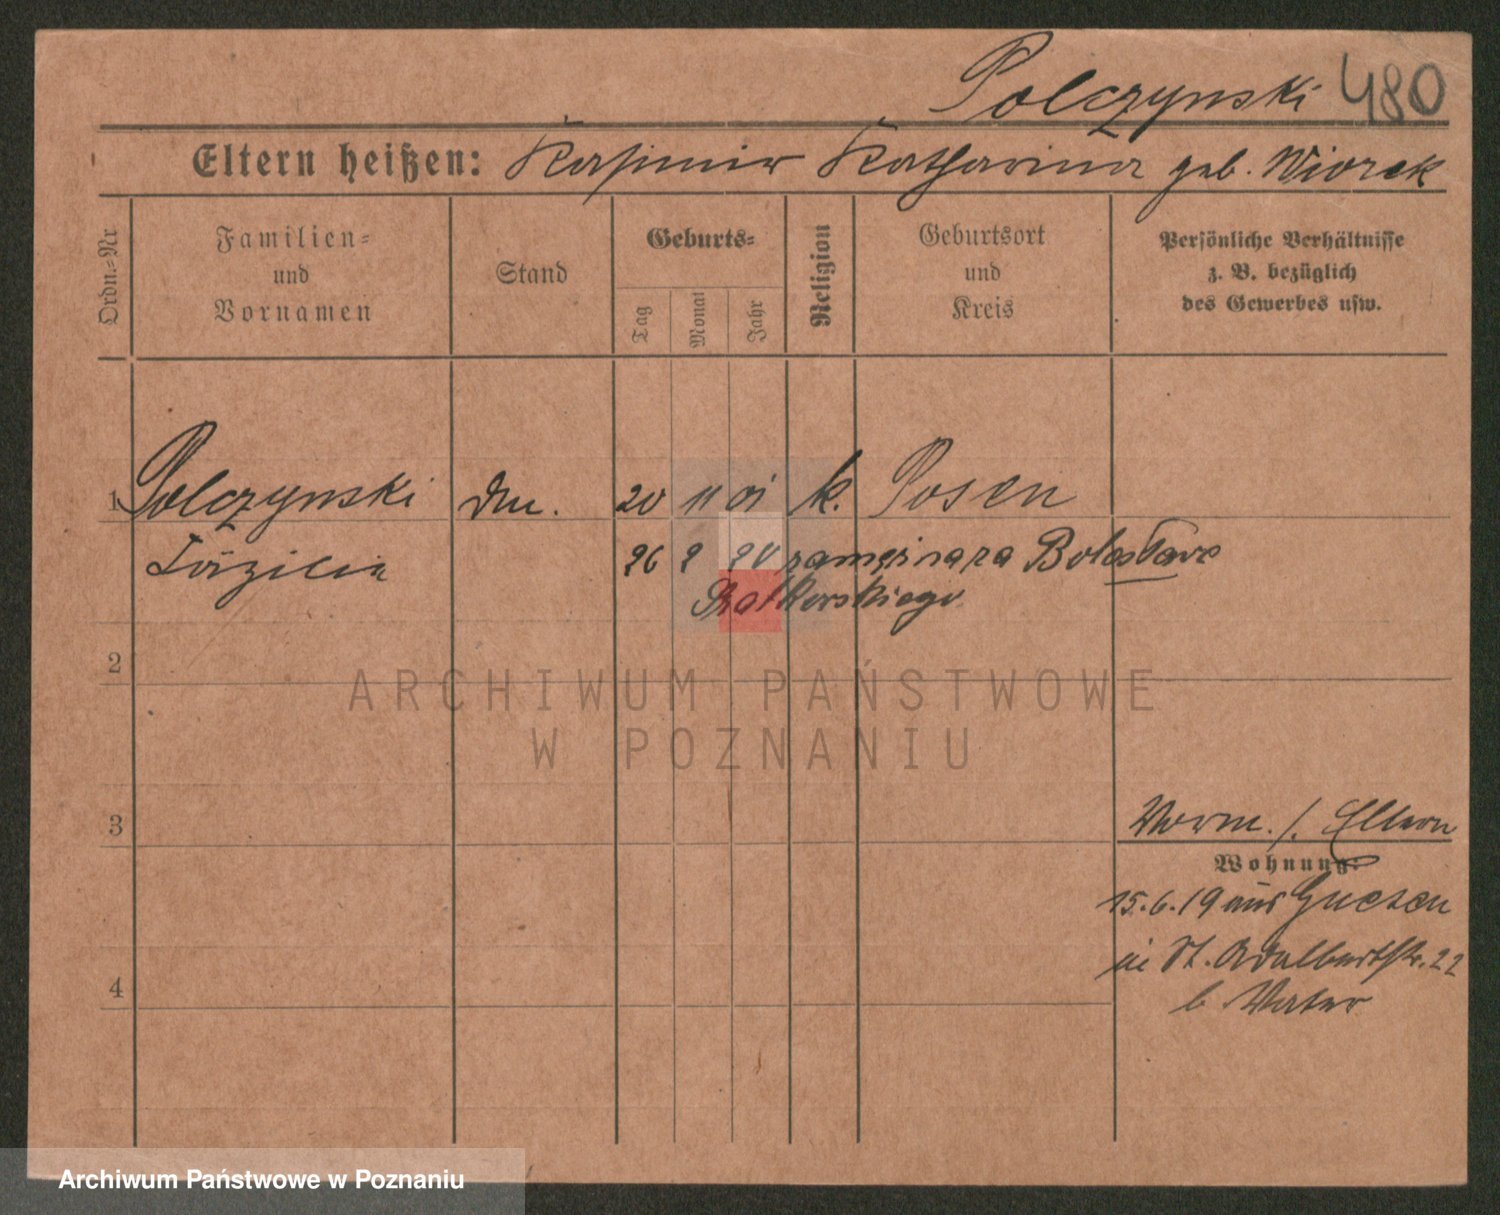 Polczynski 480
Eltern heißen: Kasimir Katharina geb. Wiorek
Ordn.-Nr
Familien-
und
Vornamen
Stand
Geburts-
Tag
Monat
Jahr
Religion
Geburtsort
und
Kreis
Persönliche Verhältnisse
z. B. bezüglich
des Gewerbes usw.
1 Polczynski 20 11 01 k. Posen
Cäzilie 26 2 20 Bolesława
2
ARCHIWUM PAŃSTWOWE
W POZNANIU
3
Vorm. /. Eltern
Wohnung:
15.6.19 aus Gnesen
in St. Adalbertstr. 22
4
b. Vater
Archiwum Państwowe w Poznaniu